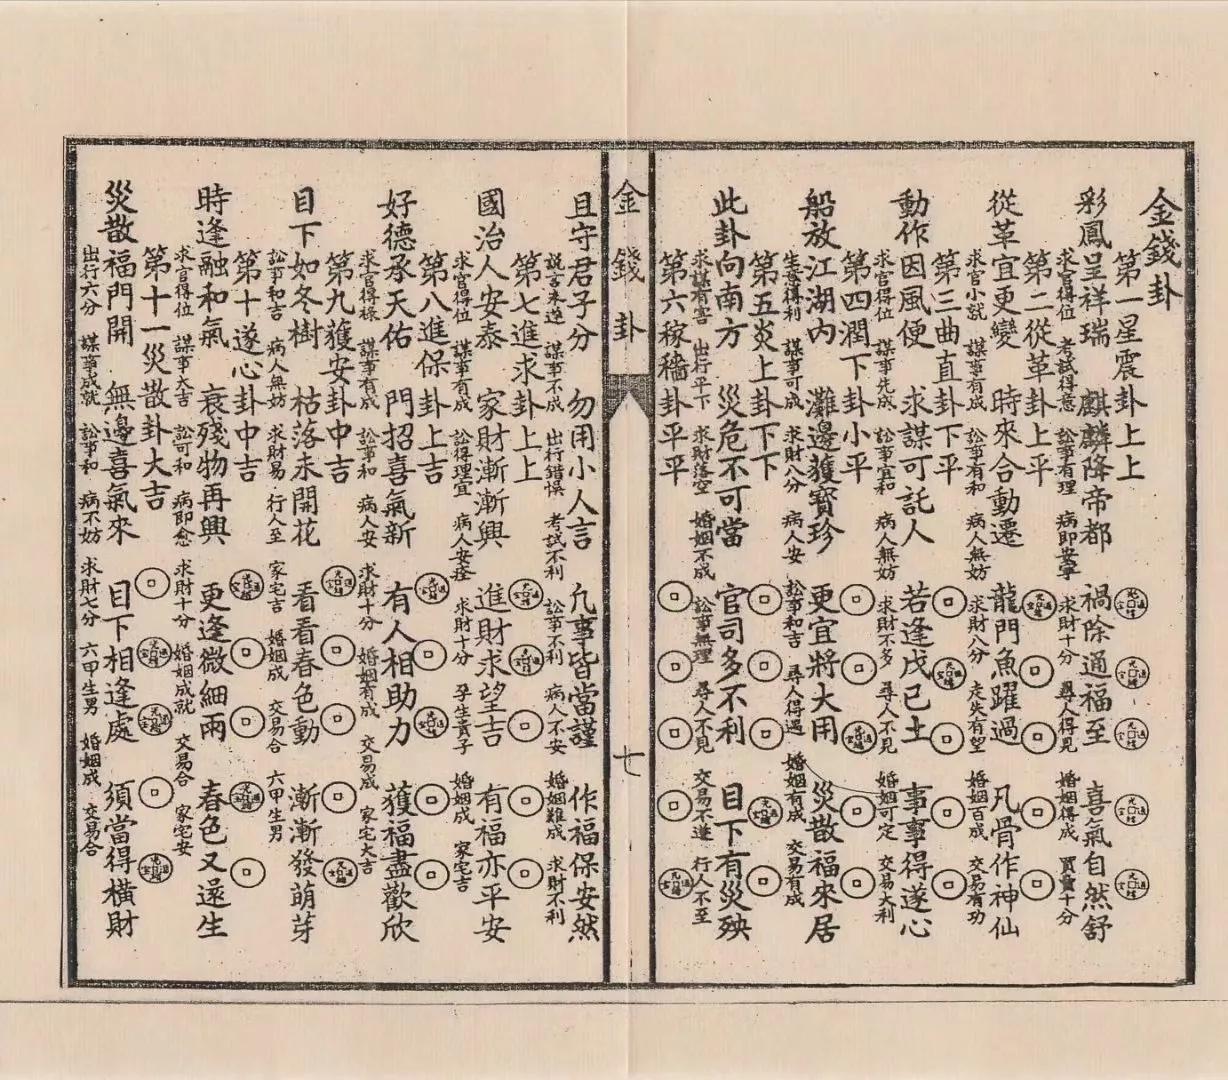 金錢卦
第一星震卦上上
彩鳳呈祥瑞 麒麟降帝都 禍除通福至 喜氣自然舒
求官得位 考試得意 訟事有理 病即安寧 求財十分 尋人得見 婚姻得成 買賣十分
第二從革卦上平
從革宜更變 時來合動遷 龍門魚躍過 凡骨作神仙
求官小就 謀事有成 訟事有和 病人無妨 求財八分 走失有望 婚姻百成 交易有功
第三曲直卦下平
動作因風便 求謀可託人 若逢戊己土 事事得遂心
求官得位 謀事先成 訟事宜和 病人無妨 求財不多 尋人不見 婚姻可定 交易大利
第四潤下卦小平
船放江湖內 灘邊獲寶珍 更宜將大用 災散福來居
生意得利 謀事可成 求財八分 病人安 訟事和吉 尋人得遇 婚姻有成 交易有成
第五炎上卦下下
此卦向南方 災危不可當 官司多不利 目下有災殃
求謀有害 出行平下 求財落空 婚姻不成 訟事無理 尋人不見 交易不遂 行人不至
第六稼穡卦平平
金錢卦
七
且守君子分 勿用小人言 凡事皆當謹 作福保安然
說言未進 謀事不成 出行錯悞 考試不利 訟事不利 病人不安 婚姻難成 求財不利
第七進求卦上上
國治人安泰 家財漸漸興 進財求望吉 有福亦平安
求官得位 謀事有成 訟得理宜 病人安痊 求財十分 孕生貴子 婚姻成 家宅吉
第八進保卦上吉
好德承天佑 門招喜氣新 有人相助力 獲福盡歡欣
求官得祿 謀事有成 訟事和 病人安 求財十分 婚姻有成 交易成 家宅大吉
第九獲安卦中吉
目下如冬樹 枯落未開花 看看春色動 漸漸發萌芽
訟事和吉 病人無妨 求財易 行人至 家宅吉 婚姻成 交易合 六甲生男
第十遂心卦中吉
時逢融和氣 衰殘物再興 更逢微細雨 春色又還生
求官得位 謀事大吉 訟可和 病即愈 求財十分 婚姻成就 交易合 家宅安
第十一災散卦大吉
災散福門開 無邊喜氣來 目下相逢處 須當得橫財
出行六分 謀事成就 訟事和 病不妨 求財七分 六甲生男 婚姻成 交易合